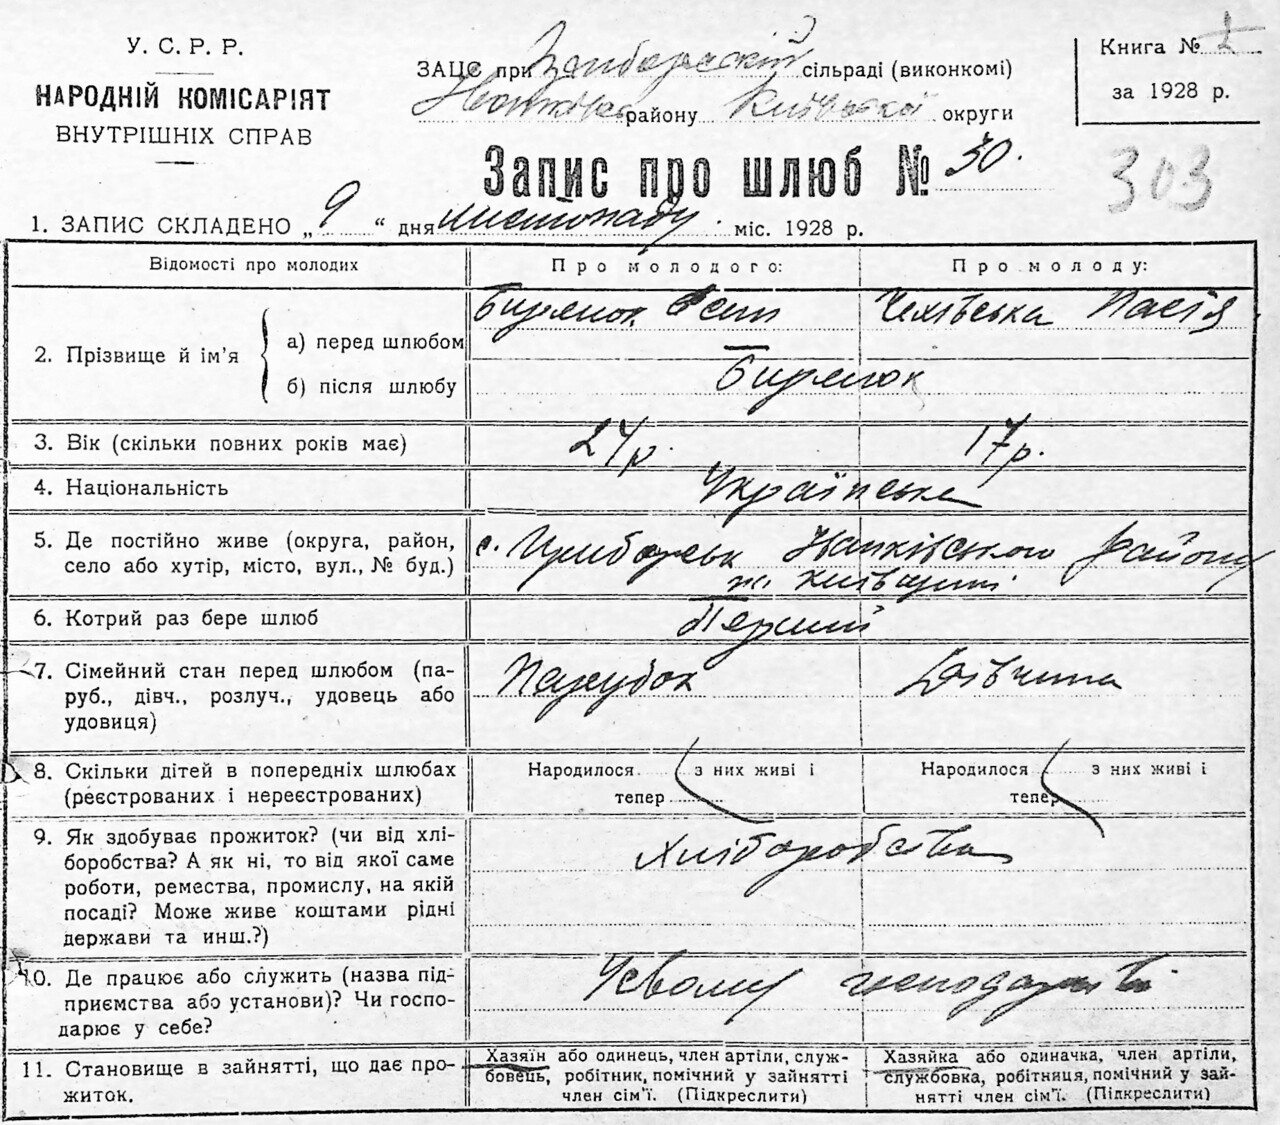 У. С. Р. Р.
НАРОДНІЙ КОМІСАРІЯТ
ВНУТРІШНІХ СПРАВ
ЗАЦС при сільраді (виконкомі)
району Київської округи
Книга № 1
за 1928 р.
Запис про шлюб № 30.
303
1. ЗАПИС СКЛАДЕНО „ 9 “ дня листопаду міс. 1928 р.
Відомості про молодих
Про молодого:
Про молоду:
2. Прізвище й ім’я
а) перед шлюбом
Бирмок Чехівська
б) після шлюбу
Бирмок
3. Вік (скільки повних років має)
24 р. 17 р.
4. Національність
Українська
5. Де постійно живе (округа, район,
село або хутір, місто, вул., № буд.)
с. Прибірськ Іванківського району
на Київщині
6. Котрий раз бере шлюб
Перший
7. Сімейний стан перед шлюбом (па-
руб., дівч., розлуч., удовець або
удовиця)
Парубок Дівчина
8. Скільки дітей в попередніх шлюбах
(реєстрованих і нереєстрованих)
Народилося з них живі і
тепер
Народилося з них живі і
тепер
9. Як здобуває прожиток? (чи від хлі-
боробства? А як ні, то від якої саме
роботи, ремества, промислу, на якій
посаді? Може живе коштами рідні
держави та инш.?)
Хліборобства
10. Де працює або служить (назва під-
приємства або установи)? Чи госпо-
дарює у себе?
У свому господарстві
11. Становище в зайнятті, що дає про-
житок.
Хазяїн або одинець, член артіли, служ-
бовець, робітник, помічний у зайнятті
член сім’ї. (Підкреслити)
Хазяйка або одиначка, член артіли,
службовка, робітниця, помічний у зай-
нятті член сім’ї. (Підкреслити)